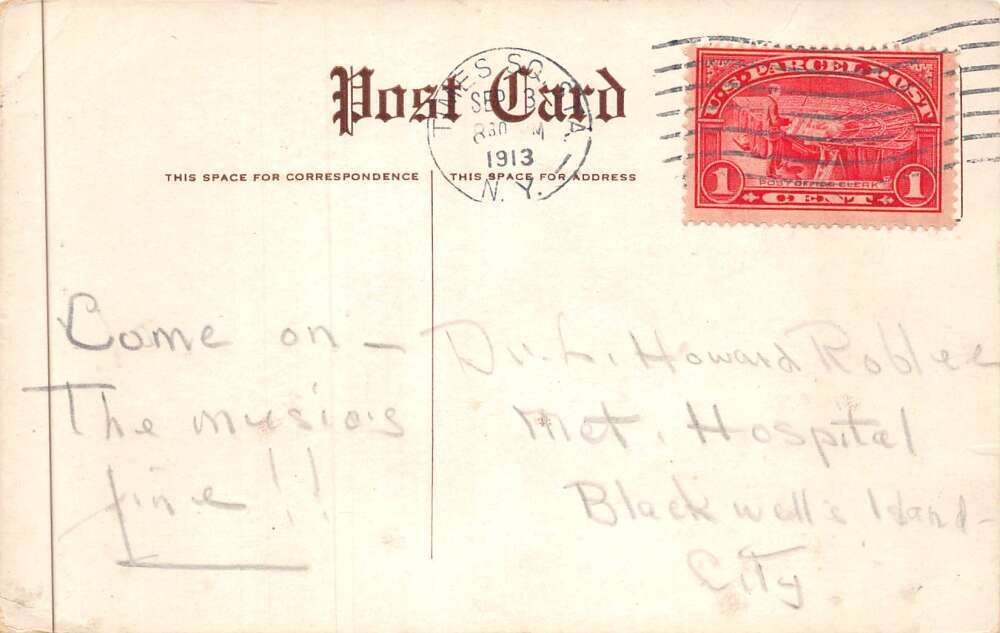 Post Card
TIMES SQ. STA.
SEP 3
830 M
1913
N. Y.
U.S. PARCEL POST
POST OFFICE CLERK
1 CENT 1
THIS SPACE FOR CORRESPONDENCE
THIS SPACE FOR ADDRESS
Come on —
The music's
fine!!
Dr. L. Howard Roblee
Met. Hospital
Blackwell's Island-
City